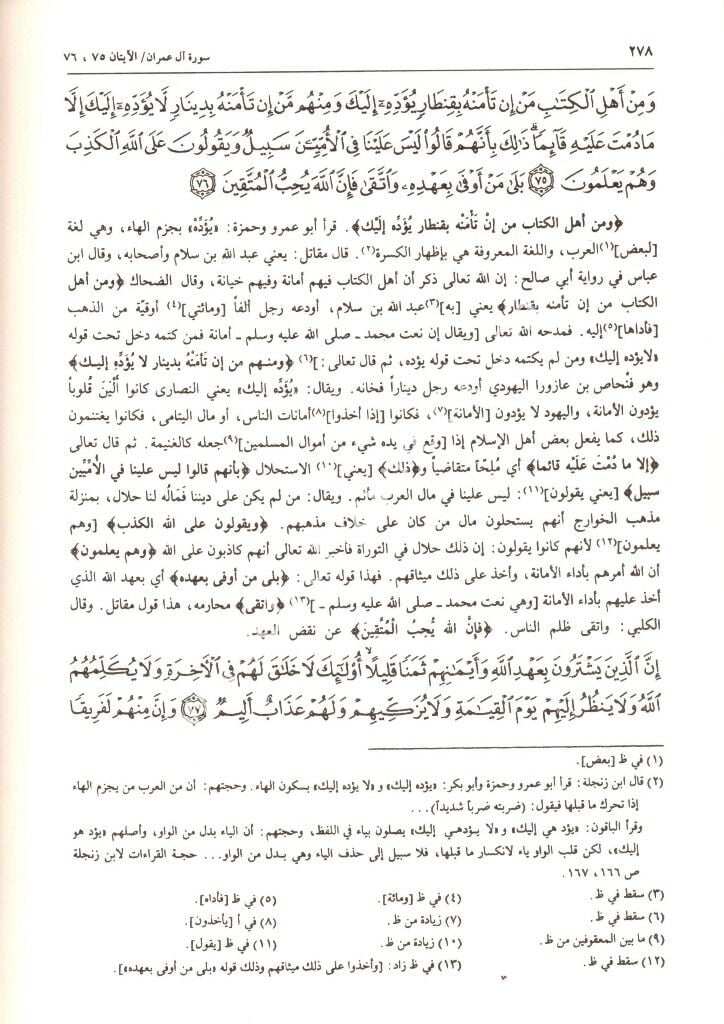 ٢٧٨
سورة آل عمران/ الآيتان ٧٥ ، ٧٦
وَمِنْ أَهْلِ الْكِتَابِ مَنْ إِن تَأْمَنْهُ بِقِنطَارٍ يُؤَدِّهِ إِلَيْكَ وَمِنْهُم مَّنْ إِن تَأْمَنْهُ بِدِينَارٍ لَّا يُؤَدِّهِ إِلَيْكَ إِلَّا
مَا دُمْتَ عَلَيْهِ قَائِمًا ذَٰلِكَ بِأَنَّهُمْ قَالُوا لَيْسَ عَلَيْنَا فِي الْأُمِّيِّينَ سَبِيلٌ وَيَقُولُونَ عَلَى اللَّهِ الْكَذِبَ
وَهُمْ يَعْلَمُونَ ﴿٧٥﴾ بَلَىٰ مَنْ أَوْفَىٰ بِعَهْدِهِ وَاتَّقَىٰ فَإِنَّ اللَّهَ يُحِبُّ الْمُتَّقِينَ ﴿٧٦﴾
﴿ومن أهل الكتاب من إنْ تَأْمَنْه بقنطار يُؤَدِّه إلَيْك﴾. قرأ أبو عمرو وحمزة: «يُؤَدِّهْ» بجزم الهاء، وهي لغة
[لبعض](١) العرب، واللغة المعروفة هي بإظهار الكسرة(٢). قال مقاتل: يعني عبد الله بن سلام وأصحابه، وقال ابن
عباس في رواية أبي صالح: إن الله تعالى ذكر أن أهل الكتاب فيهم أمانة وفيهم خيانة، وقال الضحاك ﴿ومن أهل
الكتاب من إن تأمنه بقنطار﴾ يعني [به](٣) عبد الله بن سلام، أودعه رجل ألفاً [ومائتي](٤) أوقيّة من الذهب
[فأداها](٥) إليه. فمدحه الله تعالى [ويقال إن نعت محمد ـ صلى الله عليه وسلم ـ أمانة فمن كتمه دخل تحت قوله
«لايؤده إليك» ومن لم يكتمه دخل تحت قوله يؤده، ثم قال تعالى:](٦) ﴿ومنهم من إن تَأمَنْهُ بدينار لا يُؤَدِّه إليك﴾
وهو فنْحاص بن عازورا اليهودي أودعه رجل ديناراً فخانه. ويقال: «يُؤَدِّه إليك» يعني النصارى كانوا أَلْيَنَ قُلوباً
يؤدون الأمانة، واليهود لا يؤدون [الأمانة](٧)، فكانوا [إذا أخذوا](٨) أمانات الناس، أو مال اليتامى، فكانوا يغتنمون
ذلك، كما يفعل بعض أهل الإسلام إذا [وقع في يده شيء من أموال المسلمين](٩) جعله كالغنيمة. ثم قال تعالى
﴿إلا ما دُمْتَ عَلَيْه قائما﴾ أي مُلِحّاً متقاضياً و﴿ذلك﴾ [يعني](١٠) الاستحلال ﴿بأنهم قالوا ليس علينا في الأمِّيِّين
سبيل﴾ [يعني يقولون](١١): ليس علينا في مال العرب مأثم. ويقال: من لم يكن على ديننا فمَالُه لنا حلال، بمنزلة
مذهب الخوارج أنهم يستحلون مال من كان على خلاف مذهبهم. ﴿ويقولون على الله الكذب﴾ [وهم
يعلمون](١٢) لأنهم كانوا يقولون: إن ذلك حلال في التوراة فأخبر الله تعالى أنهم كاذبون على الله ﴿وهم يعلمون﴾
أن الله أمرهم بأداء الأمانة، وأخذ على ذلك ميثاقهم. فهذا قوله تعالى: ﴿بلى من أوفى بعهده﴾ أي بعهد الله الذي
أخذ عليهم بأداء الأمانة [وهي نعت محمد ـ صلى الله عليه وسلم ـ](١٣) ﴿واتقى﴾ محارمه، هذا قول مقاتل. وقال
الكلبي: واتقى ظلم الناس. ﴿فإنَّ الله يُحِبُّ الْمُتَّقِينَ﴾ عن نقض العهد.
إِنَّ الَّذِينَ يَشْتَرُونَ بِعَهْدِ اللَّهِ وَأَيْمَانِهِمْ ثَمَنًا قَلِيلًا أُولَٰئِكَ لَا خَلَاقَ لَهُمْ فِي الْآخِرَةِ وَلَا يُكَلِّمُهُمُ
اللَّهُ وَلَا يَنظُرُ إِلَيْهِمْ يَوْمَ الْقِيَامَةِ وَلَا يُزَكِّيهِمْ وَلَهُمْ عَذَابٌ أَلِيمٌ ﴿٧٧﴾ وَإِنَّ مِنْهُمْ لَفَرِيقًا
(١) في ظ [بعض].
(٢) قال ابن زنجلة: قرأ أبو عمرو وحمزة وأبو بكر: «يؤده إليك» و «لا يؤده إليك» بسكون الهاء. وحجتهم: أن من العرب من يجزم الهاء
إذا تحرك ما قبلها فيقول: (ضربته ضرباً شديداً)...
وقرأ الباقون: «يؤد هي إليك» و «لا يؤدهي إليك» يصلون بياء في اللفظ، وحجتهم: أن الياء بدل من الواو، وأصلهم «يؤد هو
إليك»، لكن قلب الواو ياء لانكسار ما قبلها، فلا سبيل إلى حذف الياء وهي بدل من الواو... حجة القراءات لابن زنجلة
ص ١٦٦، ١٦٧.
(٣) سقط في ظ. (٤) في ظ [ومائة]. (٥) في ظ [فأداه].
(٦) سقط في ظ. (٧) زيادة من ظ. (٨) في أ [يأخذون].
(٩) ما بين المعقوفين من ظ. (١٠) زيادة من ظ. (١١) في ظ [يقول].
(١٢) سقط في ظ. (١٣) في ظ زاد: [وأخذوا على ذلك ميثاقهم وذلك قوله «بلى من أوفى بعهده»].